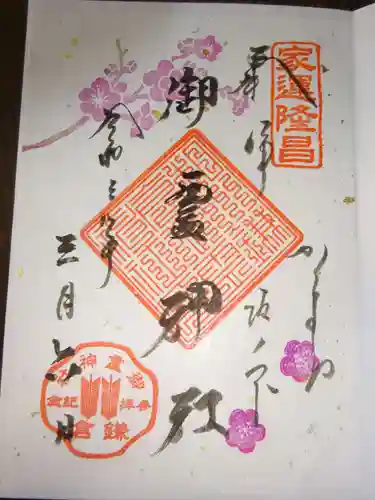 家運隆昌
奉拝
かまくら
坂ノ下
御霊神社
令和三年
三月六日
御霊神社
参拝記念
鎌倉